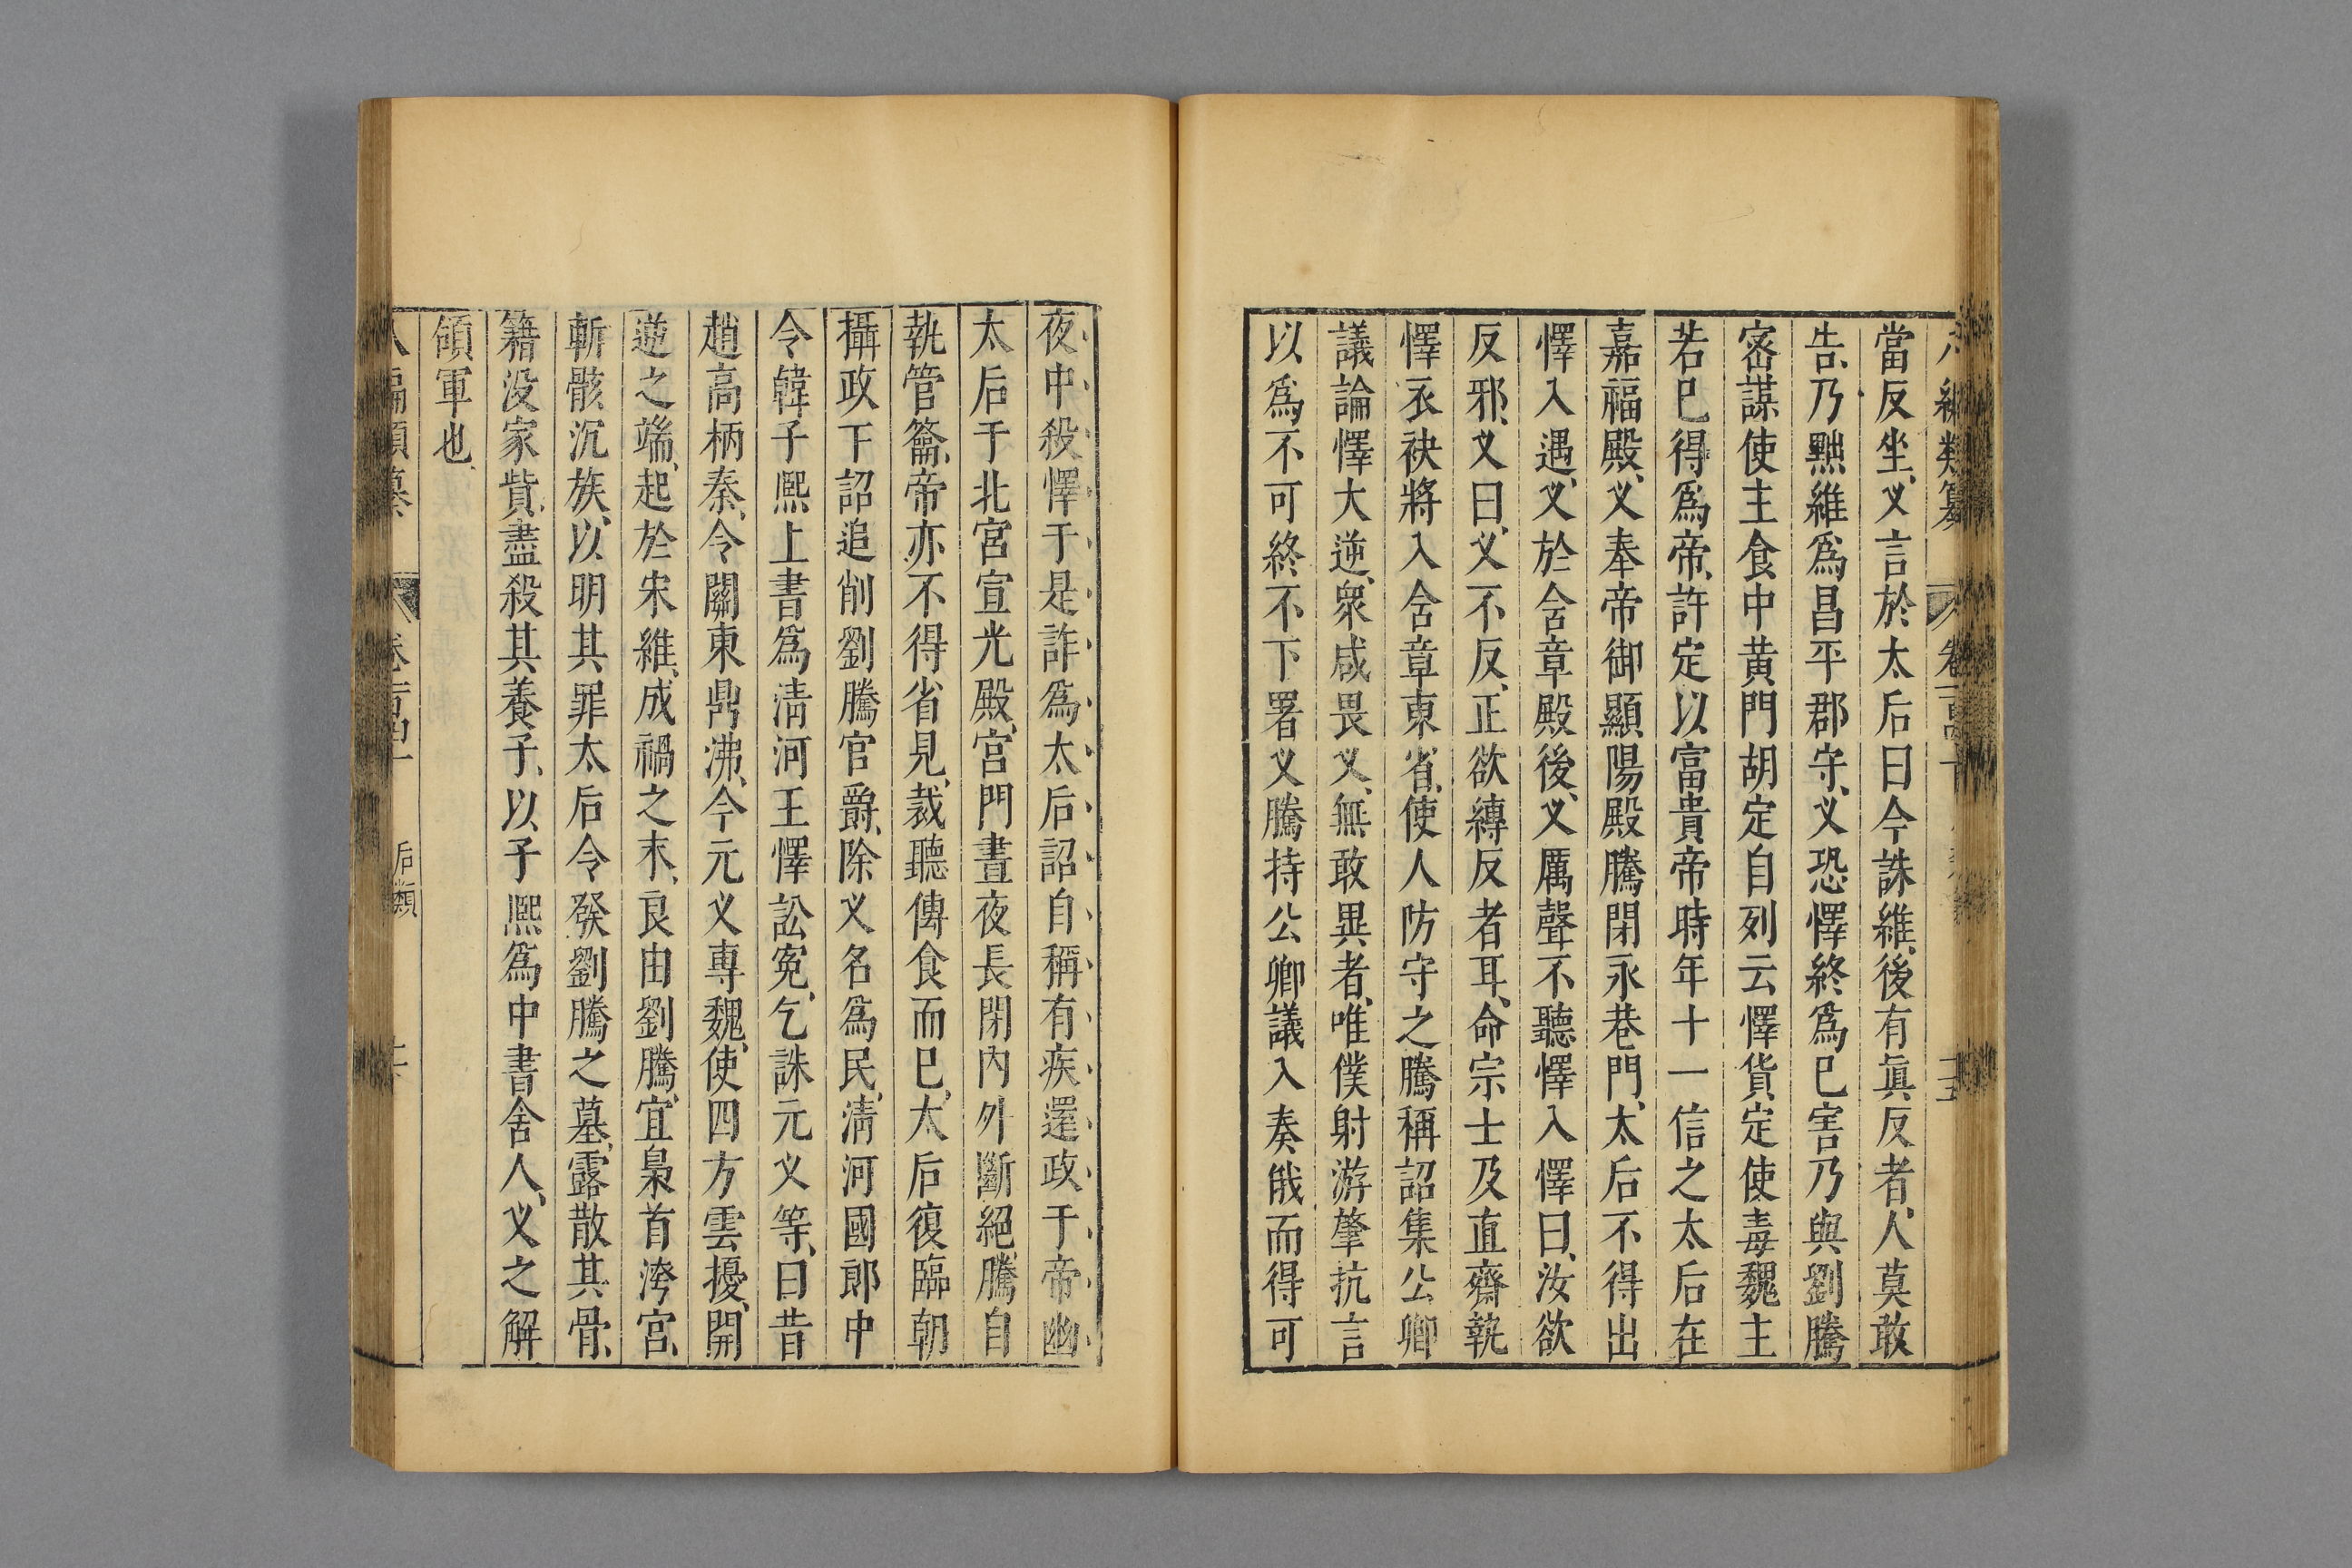 八編類纂　卷一百四十　十五
當反坐、义言於太后曰今誅維、後有眞反者、人莫敢
告、乃黜維爲昌平郡守、义恐懌終爲巳害乃與劉騰
宻謀使主食中黄門胡定自列云懌貨定使毒魏主
若巳得爲帝、許定以富貴帝時年十一信之太后在
嘉福殿、义奉帝御顯陽殿騰閉永巷門、太后不得出
懌入遇、义於含章殿後、义厲聲不聽懌入懌曰、汝欲
反邪、义曰、义不反、正欲縛反者耳、命宗士及直齋執
懌衣袂將入含章東省、使人防守之騰稱詔集公卿
議論懌大逆、衆咸畏义、無敢異者、唯僕射游肇抗言
以爲不可終不下署义騰持公卿議入奏俄而得可
夜中殺懌于是詐爲太后詔自稱有疾還政于帝幽
太后于北宮宣光殿、宮門晝夜長閉内外斷絕、騰自
執管籥、帝亦不得省見、裁聽傳食而巳、太后復臨朝
攝政下詔追削劉騰官爵、除义名爲民、淸河國郎中
令韓子熙上書爲淸河王懌訟寃、乞誅元义等、曰昔
趙高柄秦、令關東鼎沸、今元义專魏、使四方雲擾、開
逆之端、起於宋維、成禍之末、良由劉騰、宜梟首洿宫、
斬骸沉族、以明其罪太后令發劉騰之墓、露散其骨、
籍没家貲、盡殺其養子、以子熙爲中書舍人、义之解
領軍也、
八編類纂　卷一百四十　后類